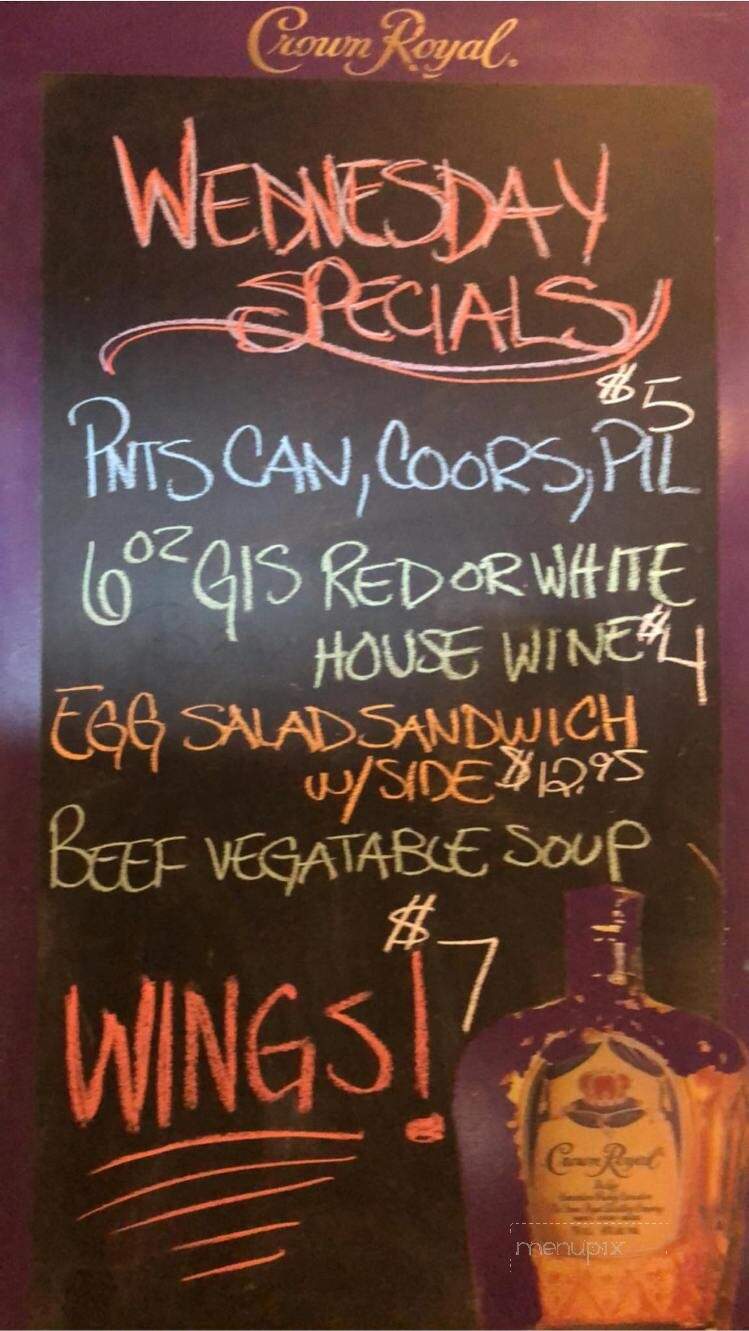 Crown Royal.
WEDNESDAY
SPECIALS
$5
PNTS CAN, COORS, PIL
6oz GlS RED OR WHITE
HOUSE WINE $4
EGG SALAD SANDWICH
W/SIDE $12.95
BEEF VEGATABLE SOUP
$7
WINGS!
Crown Royal
menupix